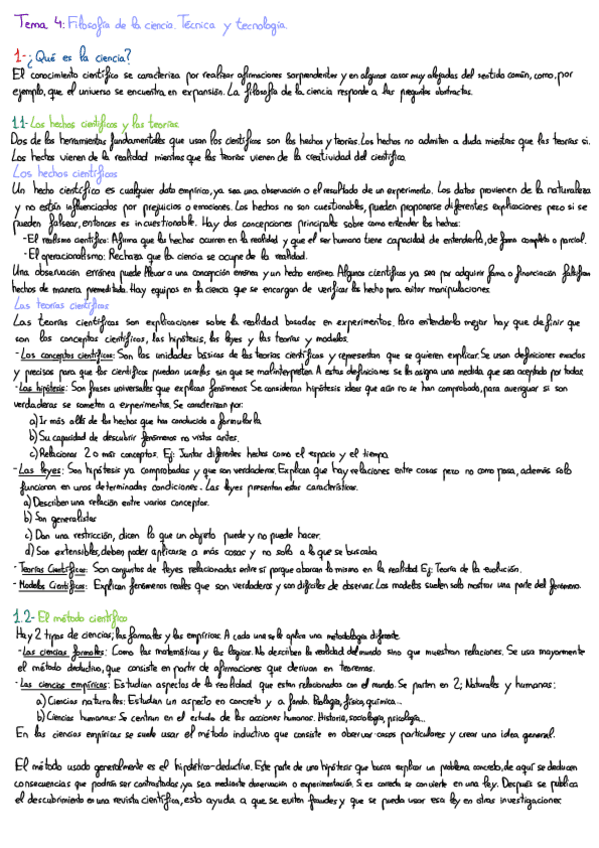 Tema 4: Filosofía de la ciencia. Técnica y tecnología.
1-¿Qué es la ciencia?
El conocimiento científico se caracteriza por realizar afirmaciones sorprendentes y en algunos casos muy alejadas del sentido común, como, por
ejemplo, que el universo se encuentra en expansión. La filosofía de la ciencia responde a las preguntas abstractas.
1.1-Los hechos científicos y las teorías
Dos de las herramientas fundamentales que usan los científicos son los hechos y teorías. Los hechos no admiten a duda mientras que las teorías si.
Los hechos vienen de la realidad mientras que las teorías vienen de la creatividad del científico.
Los hechos científicos
Un hecho científico es cualquier dato empírico, ya sea una observación o el resultado de un experimento. Los datos provienen de la naturaleza
y no están influenciados por prejuicios o emociones. Los hechos no son cuestionables, pueden proponerse diferentes explicaciones pero si se
pueden falsear, entonces es incuestionable. Hay dos concepciones principales sobre como entender los hechos:
-El realismo científico: Afirma que los hechos ocurren en la realidad y que el ser humano tiene capacidad de entenderla, de forma completa o parcial.
-El operacionalismo: Rechaza que la ciencia se ocupe de la realidad.
Una observación errónea puede llevar a una concepción errónea y un hecho erróneo. Algunos científicos ya sea por adquirir fama o financiación falsifican
hechos de manera premeditada. Hay equipos en la ciencia que se encargan de verificar los hechos para evitar manipulaciones
Las teorías científicas
Las teorías científicas son explicaciones sobre la realidad basadas en experimentos. Para entenderlo mejor hay que definir que
son los conceptos científicos, las hipótesis, las leyes y las teorías y modelos.
-Los conceptos científicos: Son las unidades básicas de las teorías científicas y representan que se quieren explicar. Se usan definiciones exactas
y precisas para que los científicos puedan usarlas sin que se malinterpreten. A estas definiciones se les asigna una medida que sea aceptada por todos.
-Las hipótesis: Son frases universales que explican fenómenos. Se consideran hipótesis ideas que aún no se han comprobado, para averiguar si son
verdaderas se someten a experimentos. Se caracterizan por:
a) Ir más allá de los hechos que han conducido a formularla
b) Su capacidad de descubrir fenómenos no vistos antes.
c) Relacionar 2 o más conceptos. Ej: Juntar diferentes hechos como el espacio y el tiempo.
-Las leyes: Son hipótesis ya comprobadas y que son verdaderas. Explican que hay relaciones entre cosas pero no como pasa, además solo
funcionan en unas determinadas condiciones. Las leyes presentan estas características.
a) Describen una relación entre varios conceptos.
b) Son generalistas
c) Dan una restricción, dicen lo que un objeto puede y no puede hacer.
d) Son extensibles, deben poder aplicarse a más cosas y no solo a lo que se buscaba
-Teorías Científicas: Son conjuntos de leyes relacionadas entre sí porque abarcan lo mismo en la realidad Ej: Teoría de la evolución.
-Modelos Científicos: Explican fenómenos reales que son verdaderos y son difíciles de observar. Los modelos suelen solo mostrar una parte del fenómeno.
1.2- El método científico
Hay 2 tipos de ciencias; las formales y las empíricas. A cada una se le aplica una metodología diferente.
-Las ciencias formales: Como las matemáticas y las lógicas. No describen la realidad del mundo sino que muestran relaciones. Se usa mayormente
el método deductivo, que consiste en partir de afirmaciones que derivan en teoremas.
-Las ciencias empíricas: Estudian aspectos de la realidad que estan relacionados con el mundo. Se parten en 2; Naturales y humanas:
a) Ciencias naturales: Estudian un aspecto en concreto y a fondo. Biología, física, química...
b) Ciencias humanas: Se centran en el estudio de las acciones humanas. Historia, sociología, psicología...
En las ciencias empíricas se suele usar el método inductivo que consiste en observar casos particulares y crear una idea general.
El método usado generalmente es el hipotético-deductivo. Este parte de una hipótesis que busca explicar un problema concreto, de aquí se deducen
consecuencias que podrán ser contrastadas, ya sea mediante observación o experimentación. Si es correcta se convierte en una ley. Después se publica
el descubrimiento en una revista científica, esto ayuda a que se eviten fraudes y que se pueda usar esa ley en otras investigaciones